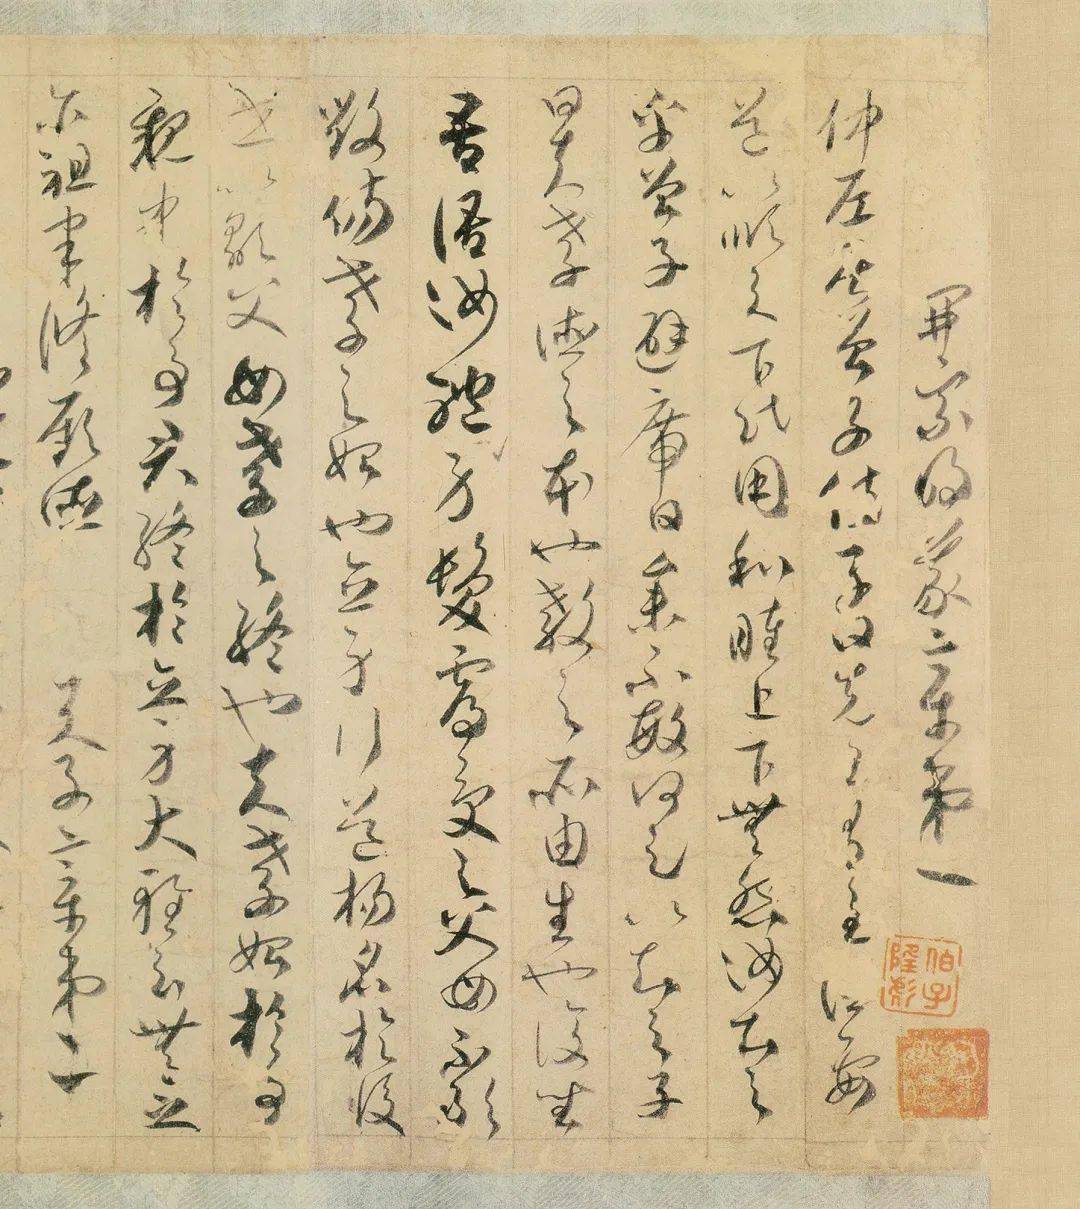 開宗明義章第一
仲尼居曾子侍子曰先王有至德要
道以順天下民用和睦上下無怨汝知之
乎曾子避席曰參不敏何足以知之子
曰夫孝德之本也教之所由生也復坐
吾語汝體身髮膚受之父母不敢
毀傷孝之始也立身行道揚名於後
世以顯父母孝之終也夫孝始於事
親中於事君終於立身大雅云無念
尔祖聿脩厥德 天子章第二